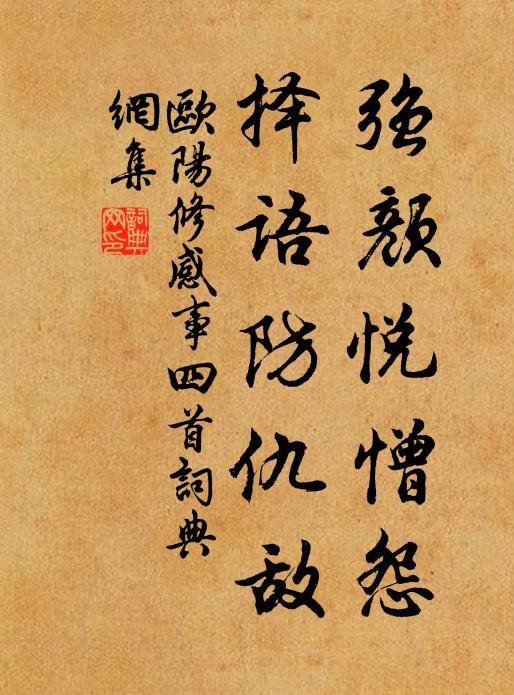 强颜悦憎怨
择语防仇敌
歐陽修感事四首詞典
網集
詞典
网印